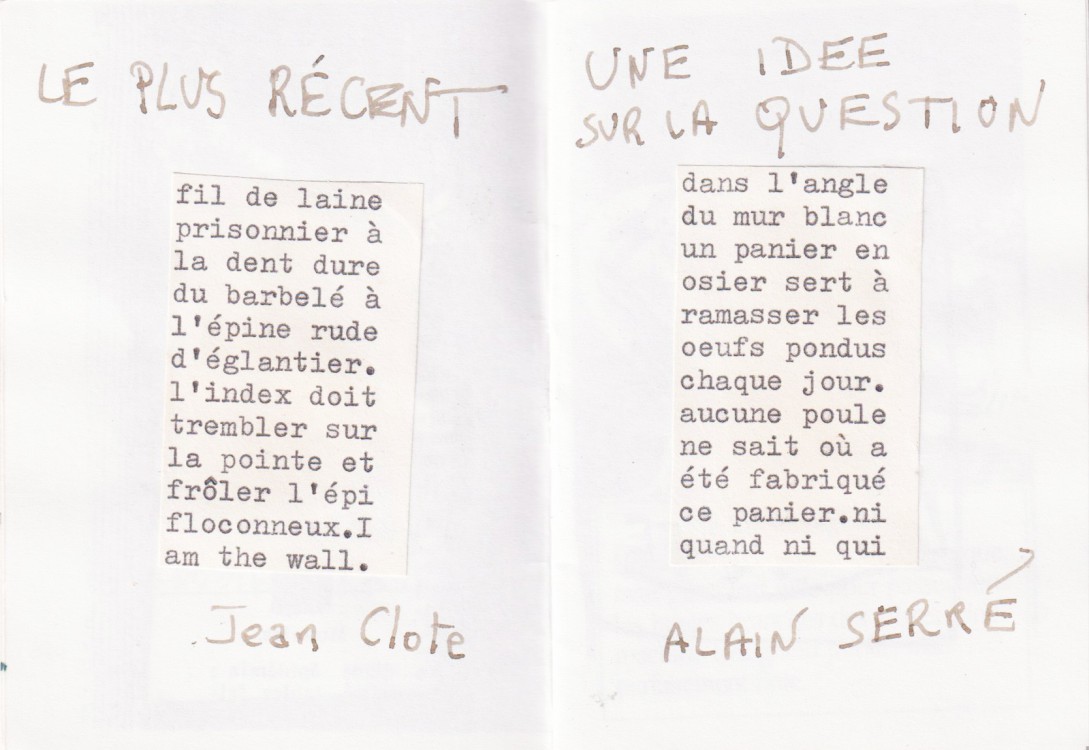 LE PLUS RÉCENT
fil de laine
prisonnier à
la dent dure
du barbelé à
l'épine rude
d'églantier.
l'index doit
trembler sur
la pointe et
frôler l'épi
floconneux.I
am the wall.
Jean Clote
UNE IDEE
SUR LA QUESTION
dans l'angle
du mur blanc
un panier en
osier sert à
ramasser les
oeufs pondus
chaque jour.
aucune poule
ne sait où a
été fabriqué
ce panier.ni
quand ni qui
ALAIN SERRÉ